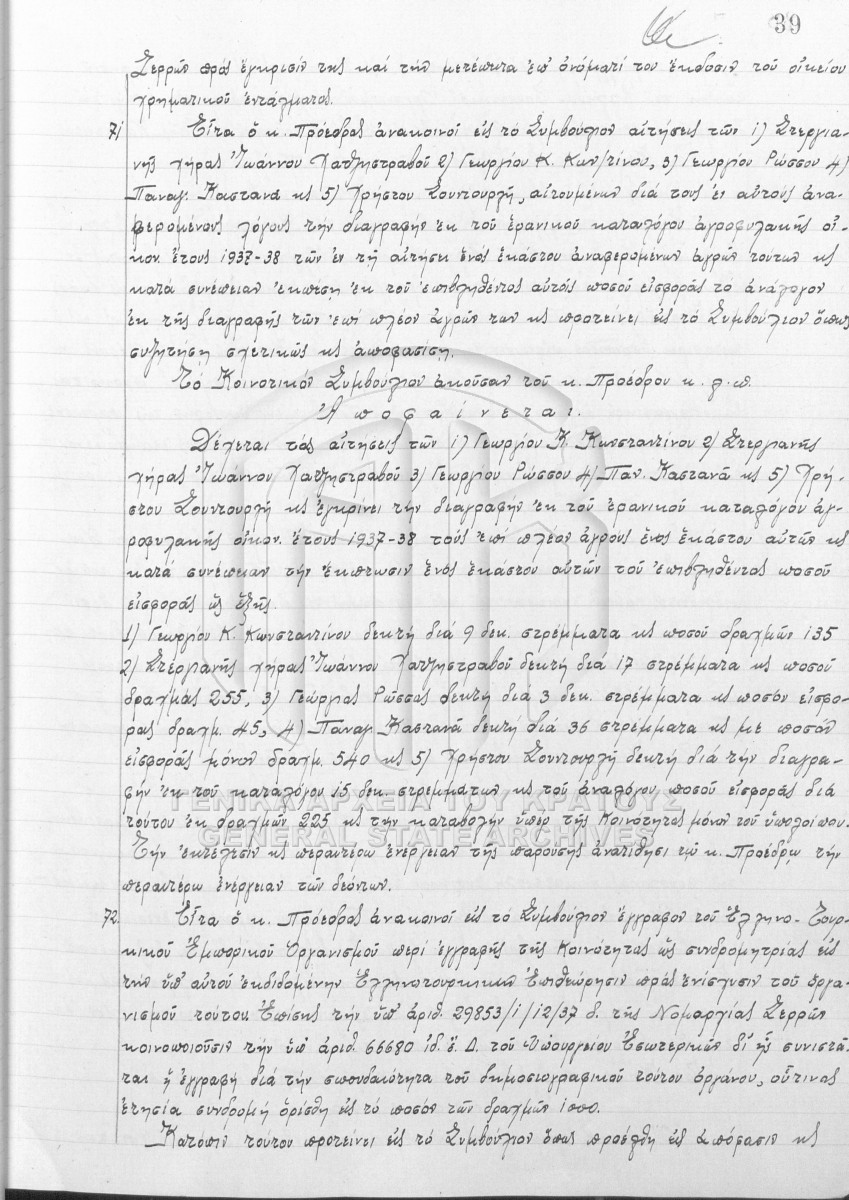 39
Σερρῶν πρός ἔγκρισίν της καί τήν μετέπειτα ἐπ' ὀνόματί του ἔκδοσιν τοῦ οἰκείου
χρηματικοῦ ἐντάλματος.
71 Εἶτα ὁ κ. Πρόεδρος ἀνακοινοῖ εἰς τό Συμβούλιον αἰτήσεις τῶν 1) Στεργια-
νῆς χήρας Ἰωάννου Χατζησταβροῦ 2) Γεωργίου Κ. Κων/τίνου, 3) Γεωργίου Ρώσσου 4)
Παναγ. Καστανᾶ κς 5) Χρήστου Σουντουρλῆ, αἰτουμένων διά τους ἐν αὐτούς ἀνα-
φερομένους λόγους τήν διαγραφήν ἐκ τοῦ ἐρανικοῦ καταλόγου ἀγροφυλακῆς οἰ-
κον. ἔτους 1937-38 τῶν ἐν τῇ αἰτήσει ἑνός ἑκάστου ἀναφερομένων ἀγρῶν τούτων κς
κατά συνέπειαν ἐκπέσῃ ἐκ τοῦ ἐπιβληθέντος αὐτοῖς ποσοῦ εἰσφορᾶς τό ἀνάλογον
ἐκ τῆς διαγραφῆς τῶν ἐπί πλέον ἀγρῶν των κς προτείνει εἰς τό Συμβούλιον ὅπως
συζητήσῃ σχετικῶς κς ἀποφασίσῃ.
Τό Κοινοτικόν Συμβούλιον ἀκοῦσαν τοῦ κ. Προέδρου κ.λ.π.
Ἀποφαίνεται.
Δέχεται τάς αἰτήσεις τῶν 1) Γεωργίου Κ. Κωνσταντίνου 2) Στεργιανῆς
χήρας Ἰωάννου Χατζησταβροῦ 3) Γεωργίου Ρώσσου 4) Παν. Καστανᾶ κς 5) Χρή-
στου Σουντουρλῆ κς ἐγκρίνει τήν διαγραφήν ἐκ τοῦ ἐρανικοῦ καταλόγου ἀγ-
ροφυλακῆς οἰκον. ἔτους 1937-38 τούς ἐπί πλέον ἀγρούς ἑνός ἑκάστου αὐτῶν κς
κατά συνέπειαν τήν ἔκπτωσιν ἑνός ἑκάστου αὐτῶν τοῦ ἐπιβληθέντος ποσοῦ
εἰσφορᾶς ὡς ἑξῆς.
1) Γεωργίου Κ. Κωνσταντίνου δεκτή διά 9 δεκ. στρέμματα κς ποσοῦ δραχμῶν 135
2) Στεργιανῆς χήρας Ἰωάννου Χατζησταβροῦ δεκτή διά 17 στρέμματα κς ποσοῦ
δραχμάς 255, 3) Γεώργιος Ρώσσος δεκτή διά 3 δεκ. στρέμματα κς ποσόν εἰσφο-
ρας δραχμ. 45, 4) Παναγ. Καστανᾶ δεκτή διά 36 στρέμματα κς με ποσόν
εἰσφορᾶς μόνον δραχμ. 540 κς 5) Χρήστου Σουντουρλῆ δεκτή διά τήν διαγρα-
φήν ἐκ τοῦ καταλόγου 15 δεκ. στρεμμάτων κς τοῦ ἀναλόγου ποσοῦ εἰσφορᾶς διά
τούτου ἐκ δραχμῶν 225 κς τήν καταβολήν ὑπέρ τῆς Κοινότητος μόνον τοῦ ὑπολοίπου.
Τήν ἐκτέλεσιν κς περαιτέρω ἐνέργειαν τῆς παρούσης ἀνατίθησι τῷ κ. Προέδρῳ τήν
περαιτέρω ἐνέργειαν τῶν δεόντων.
72. Εἶτα ὁ κ. Πρόεδρος ἀνακοινοῖ εἰς τό Συμβούλιον ἔγγραφον τοῦ Ἑλληνο-Τουρ-
κικοῦ Ἐμπορικοῦ Ὀργανισμοῦ περί ἐγγραφῆς τῆς Κοινότητος ὡς συνδρομητρίας εἰς
τήν ὑπ' αὐτοῦ ἐκδιδομένην Ἑλληνοτουρκικήν Ἐπιθεώρησιν πρός ἐνίσχυσιν τοῦ ὀργα-
νισμοῦ τούτου. Ἐπίσης τήν ὑπ' ἀριθ. 29853/1/12/37 δ. τῆς Νομαρχίας Σερρῶν
κοινοποιοῦσιν τήν ὑπ' ἀριθ. 66680 ἰδ. ἔ. Δ. τοῦ Ὑπουργείου Ἐσωτερικῶν δι' ἧς συνιστᾶ-
ται ἡ ἐγγραφή διά τήν σπουδαιότητα τοῦ δημοσιογραφικοῦ τούτου ὀργάνου, οὗτινος
ἐτησία συνδρομή ὡρίσθη εἰς τό ποσόν τῶν δραχμῶν 1000.
Κατόπιν τούτου προτείνει εἰς τό Συμβούλιον ὅπως προέλθῃ εἰς ἀπόφασιν κς
ΓΕΝΙΚΑ ΑΡΧΕΙΑ ΤΟΥ ΚΡΑΤΟΥΣ
GENERAL STATE ARCHIVES